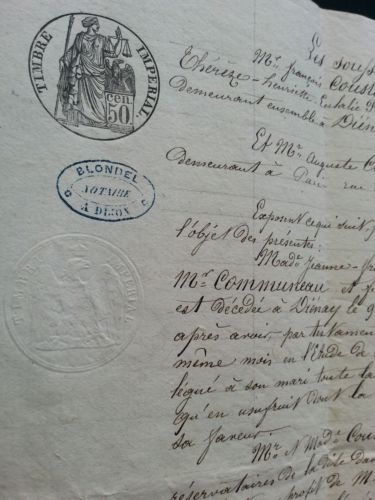 TIMBRE IMPERIAL
50 CEN.
BLONDEL
NOTAIRE
A DIJON
Les
Mr. françois
Thérèze-henriette-
Demeurant ensemble à
Et Mr. Auguste
Demeurant à Paris rue
Exposent ce qui suit,
l'objet des présentes:
Made. Jeanne-
Mr. Communeau et
est décédée à Diénay le 9
après avoir, par testament
même mois en l'Etude de
légué à son mari toute la
qu'en usufruit dont la
sa faveur.
Mr. et Made.
réservataires de la
profit de M